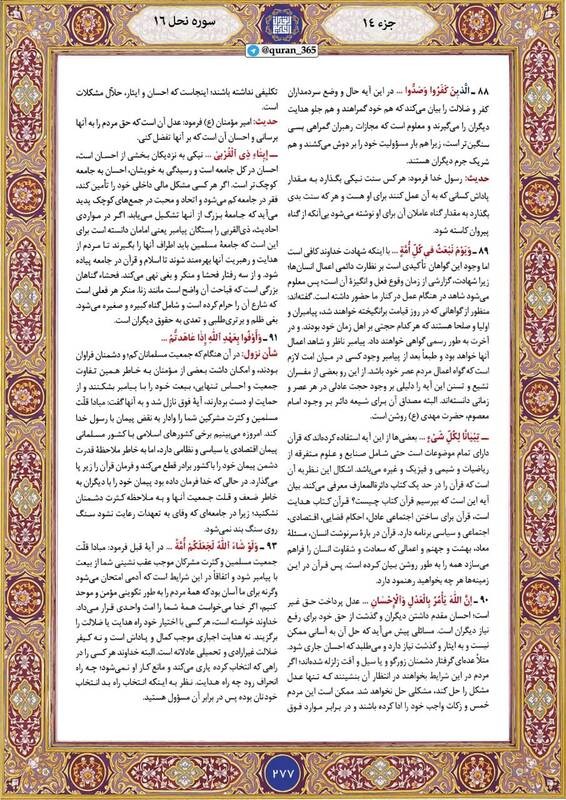 جزء ۱۴
سوره نحل ۱۶
@quran_365
۸۸ ـ الَّذِینَ کَفَرُوا وَصَدُّوا ... در این آیه حال و وضع سردمداران
کفر و ضلالت را بیان می‌کند که هم خود گمراهند و هم جلو هدایت
دیگران را می‌گیرند و معلوم است که مجازات رهبران گمراهی بسی
سنگین‌تر است، زیرا هم بار مسؤولیت خود را بر دوش می‌کشند و هم
شریک جرم دیگران هستند.
حدیث: رسول خدا فرمود: هر کس سنت نیکی بگذارد به مقدار
پاداش کسانی که به آن عمل کنند برای او هست و هر که سنت بدی
بگذارد به مقدار گناه عاملان آن برای او نوشته می‌شود بی‌آنکه از گناه
پیروان کاسته شود.
۸۹ ـ وَیَوْمَ نَبْعَثُ فِی کُلِّ أُمَّةٍ ... با اینکه شهادت خداوند کافی است
اما وجود این گواهان تأکیدی است بر نظارت دائمی اعمال انسان‌ها؛
زیرا شهادت، گزارشی از زمان وقوع فعل و انگیزهٔ آن است؛ پس معلوم
می‌شود شاهد در هنگام عمل در کنار ما حضور داشته است. گفته‌اند:
منظور از گواهانی که در روز قیامت برانگیخته خواهند شد، پیامبران و
اولیا و صلحا هستند که هر کدام حجتی بر اهل زمان خود بودند. و در
آخرت به طور رسمی گواهی خواهند داد. پیامبر ناظر و شاهد اعمال
آنها خواهد بود و طبعاً بعد از پیامبر وجود کسی در میان امت لازم
است که گواه اعمال مردم عصر خود باشد. از این رو بعضی از مفسران
تشیع و تسنن این آیه را دلیلی بر وجود حجت عادلی در هر عصر و
زمانی دانسته‌اند. البته مصداق آن برای شیعه دائر بر وجود امام
معصوم، حضرت مهدی (ع) روشن است.
ـــ تِبْیَانًا لِکُلِّ شَیْءٍ ... بعضی‌ها از این آیه استفاده کرده‌اند که قرآن
دارای تمام موضوعات است حتی شامل صنایع و علوم متفرقه از
ریاضیات و شیمی و فیزیک و غیره می‌باشد. اشکال این نظریه آن
است که قرآن را در حد یک کتاب دائرةالمعارف معرفی می‌کند. بیان
آیه این است که بپرسیم قرآن کتاب چیست؟ قرآن کتاب هدایت
است، قرآن برای ساختن اجتماعی عادل، احکام قضایی، اقتصادی،
اجتماعی و سیاسی برنامه دارد. قرآن در بارهٔ سرنوشت انسان، مسئلهٔ
معاد، بهشت و جهنم و اعمالی که سعادت و شقاوت انسان را فراهم
می‌سازد همه را به طور روشن بیان کرده است. پس قرآن در این
زمینه‌ها هر چه بخواهید رهنمود دارد.
۹۰ ـ إِنَّ اللَّهَ یَأْمُرُ بِالْعَدْلِ وَالْإِحْسَانِ ... عدل پرداخت حق غیر
است؛ احسان مقدم داشتن دیگران و گذشت از حق خود برای رفع
نیاز دیگران است. مسائلی پیش می‌آید که حل آن به آسانی ممکن
نیست و به ایثار و گذشت نیاز دارد و می‌طلبد که احسان جاری شود.
مثلاً عده‌ای گرفتار دشمنان زورگو و یا سیل و آفت زلزله شده‌اند؛ اگر
مردم در این شرایط بخواهند در انتظار آن بنشینند که تنها عدل
مشکل را حل کند، مشکلی حل نخواهد شد. ممکن است این مردم
خُمس و زکات واجب خود را ادا کرده باشند و در برابر موارد فوق
تکلیفی نداشته باشند؛ اینجاست که احسان و ایثار، حلّال مشکلات
است.
حدیث: امیر مؤمنان (ع) فرمود: عدل آن است که حق مردم را به آنها
برسانی و احسان آن است که بر آنها تفضل کنی.
ـــ إِیتَاءِ ذِی الْقُرْبَىٰ ... نیکی به نزدیکان بخشی از احسان است،
احسان در کل جامعه است و رسیدگی به خویشان، احسان به جامعه
کوچک‌تر است. اگر هر کسی مشکل مالی داخلی خود را تأمین کند،
فقر در جامعه کم می‌شود و اتحاد و محبت در جمع‌های کوچک پدید
می‌آید که جامعهٔ بزرگ از آنها تشکیل می‌یابد. اگر در مواردی
احادیث، ذی‌القربی را بستگان پیامبر یعنی امامان دانسته است برای
این است که جامعهٔ مسلمین باید اطراف آنها را بگیرند تا مردم از
هدایت و رهبریت آنها بهره‌مند شوند تا اسلام و قرآن در جامعه پیاده
شود. و از سه رفتار فحشا و منکر و بغی نهی می‌کند. فحشاء گناهان
بزرگی است که قباحت آن واضح است مانند زنا. منکر هر فعلی است
که شارع آن را حرام کرده است و شامل گناه کبیره و صغیره می‌شود.
بغی ظلم و برتری‌طلبی و تعدی به حقوق دیگران است.
۹۱ ـ وَأَوْفُوا بِعَهْدِ اللَّهِ إِذَا عَاهَدتُّمْ ...
شأن نزول: در آن هنگام که جمعیت مسلمانان کم؛ و دشمنان فراوان
بودند، و امکان داشت بعضی از مؤمنان به خاطر همین تفاوت
جمعیت و احساس تنهایی، بیعت خود را با پیامبر بشکنند و از
حمایت او دست بردارند، آیهٔ فوق نازل شد و به آنها گفت: مبادا قلّت
مسلمین و کثرت مشرکین شما را وادار به نقض پیمان با رسول خدا
کند. امروزه می‌بینیم برخی کشورهای اسلامی با کشور مسلمانی
پیمان اقتصادی یا سیاسی و نظامی دارد، اما به خاطر ملاحظهٔ قدرت
دشمن پیمان خود را با کشور برادر قطع می‌کند و فرمان قرآن را زیر پا
می‌گذارد. در حالی که خدا فرمان داده بود پیمان خود را با دیگران به
خاطر ضعف و قلت جمعیت آنها و به ملاحظه کثرت دشمنان
نشکنید؛ زیرا در جامعه‌ای که وفای به تعهدات رعایت نشود سنگ
روی سنگ بند نمی‌شود.
۹۳ ـ وَلَوْ شَاءَ اللَّهُ لَجَعَلَکُمْ أُمَّةً ... در آیهٔ قبل فرمود: مبادا قلّت
جمعیت مسلمین و کثرت مشرکان موجب عقب نشینی شما از بیعت
با پیامبر شود و اتفاقاً در این شرایط است که آدمی امتحان می‌شود
وگرنه برای ما آسان بود که همهٔ مردم را به طور تکوینی مؤمن و موحد
کنیم، اگر خدا می‌خواست همهٔ شما را امت واحدی قرار می‌داد.
خداوند خواسته است، هر کسی با اختیار خود راه هدایت یا ضلالت را
برگزیند. نه هدایت اجباری موجب کمال و پاداش است و نه کیفر
ضلالت غیرارادی و تحمیلی عادلانه است. البته خداوند هر کسی را در
راهی که انتخاب کرده یاری می‌کند و مانع کار او نمی‌شود؛ چه راه
انحراف رود چه راه هدایت. نظر به اینکه انتخاب راه بد انتخاب
خودتان بوده پس در برابر آن مسؤول هستید.
۲۷۷